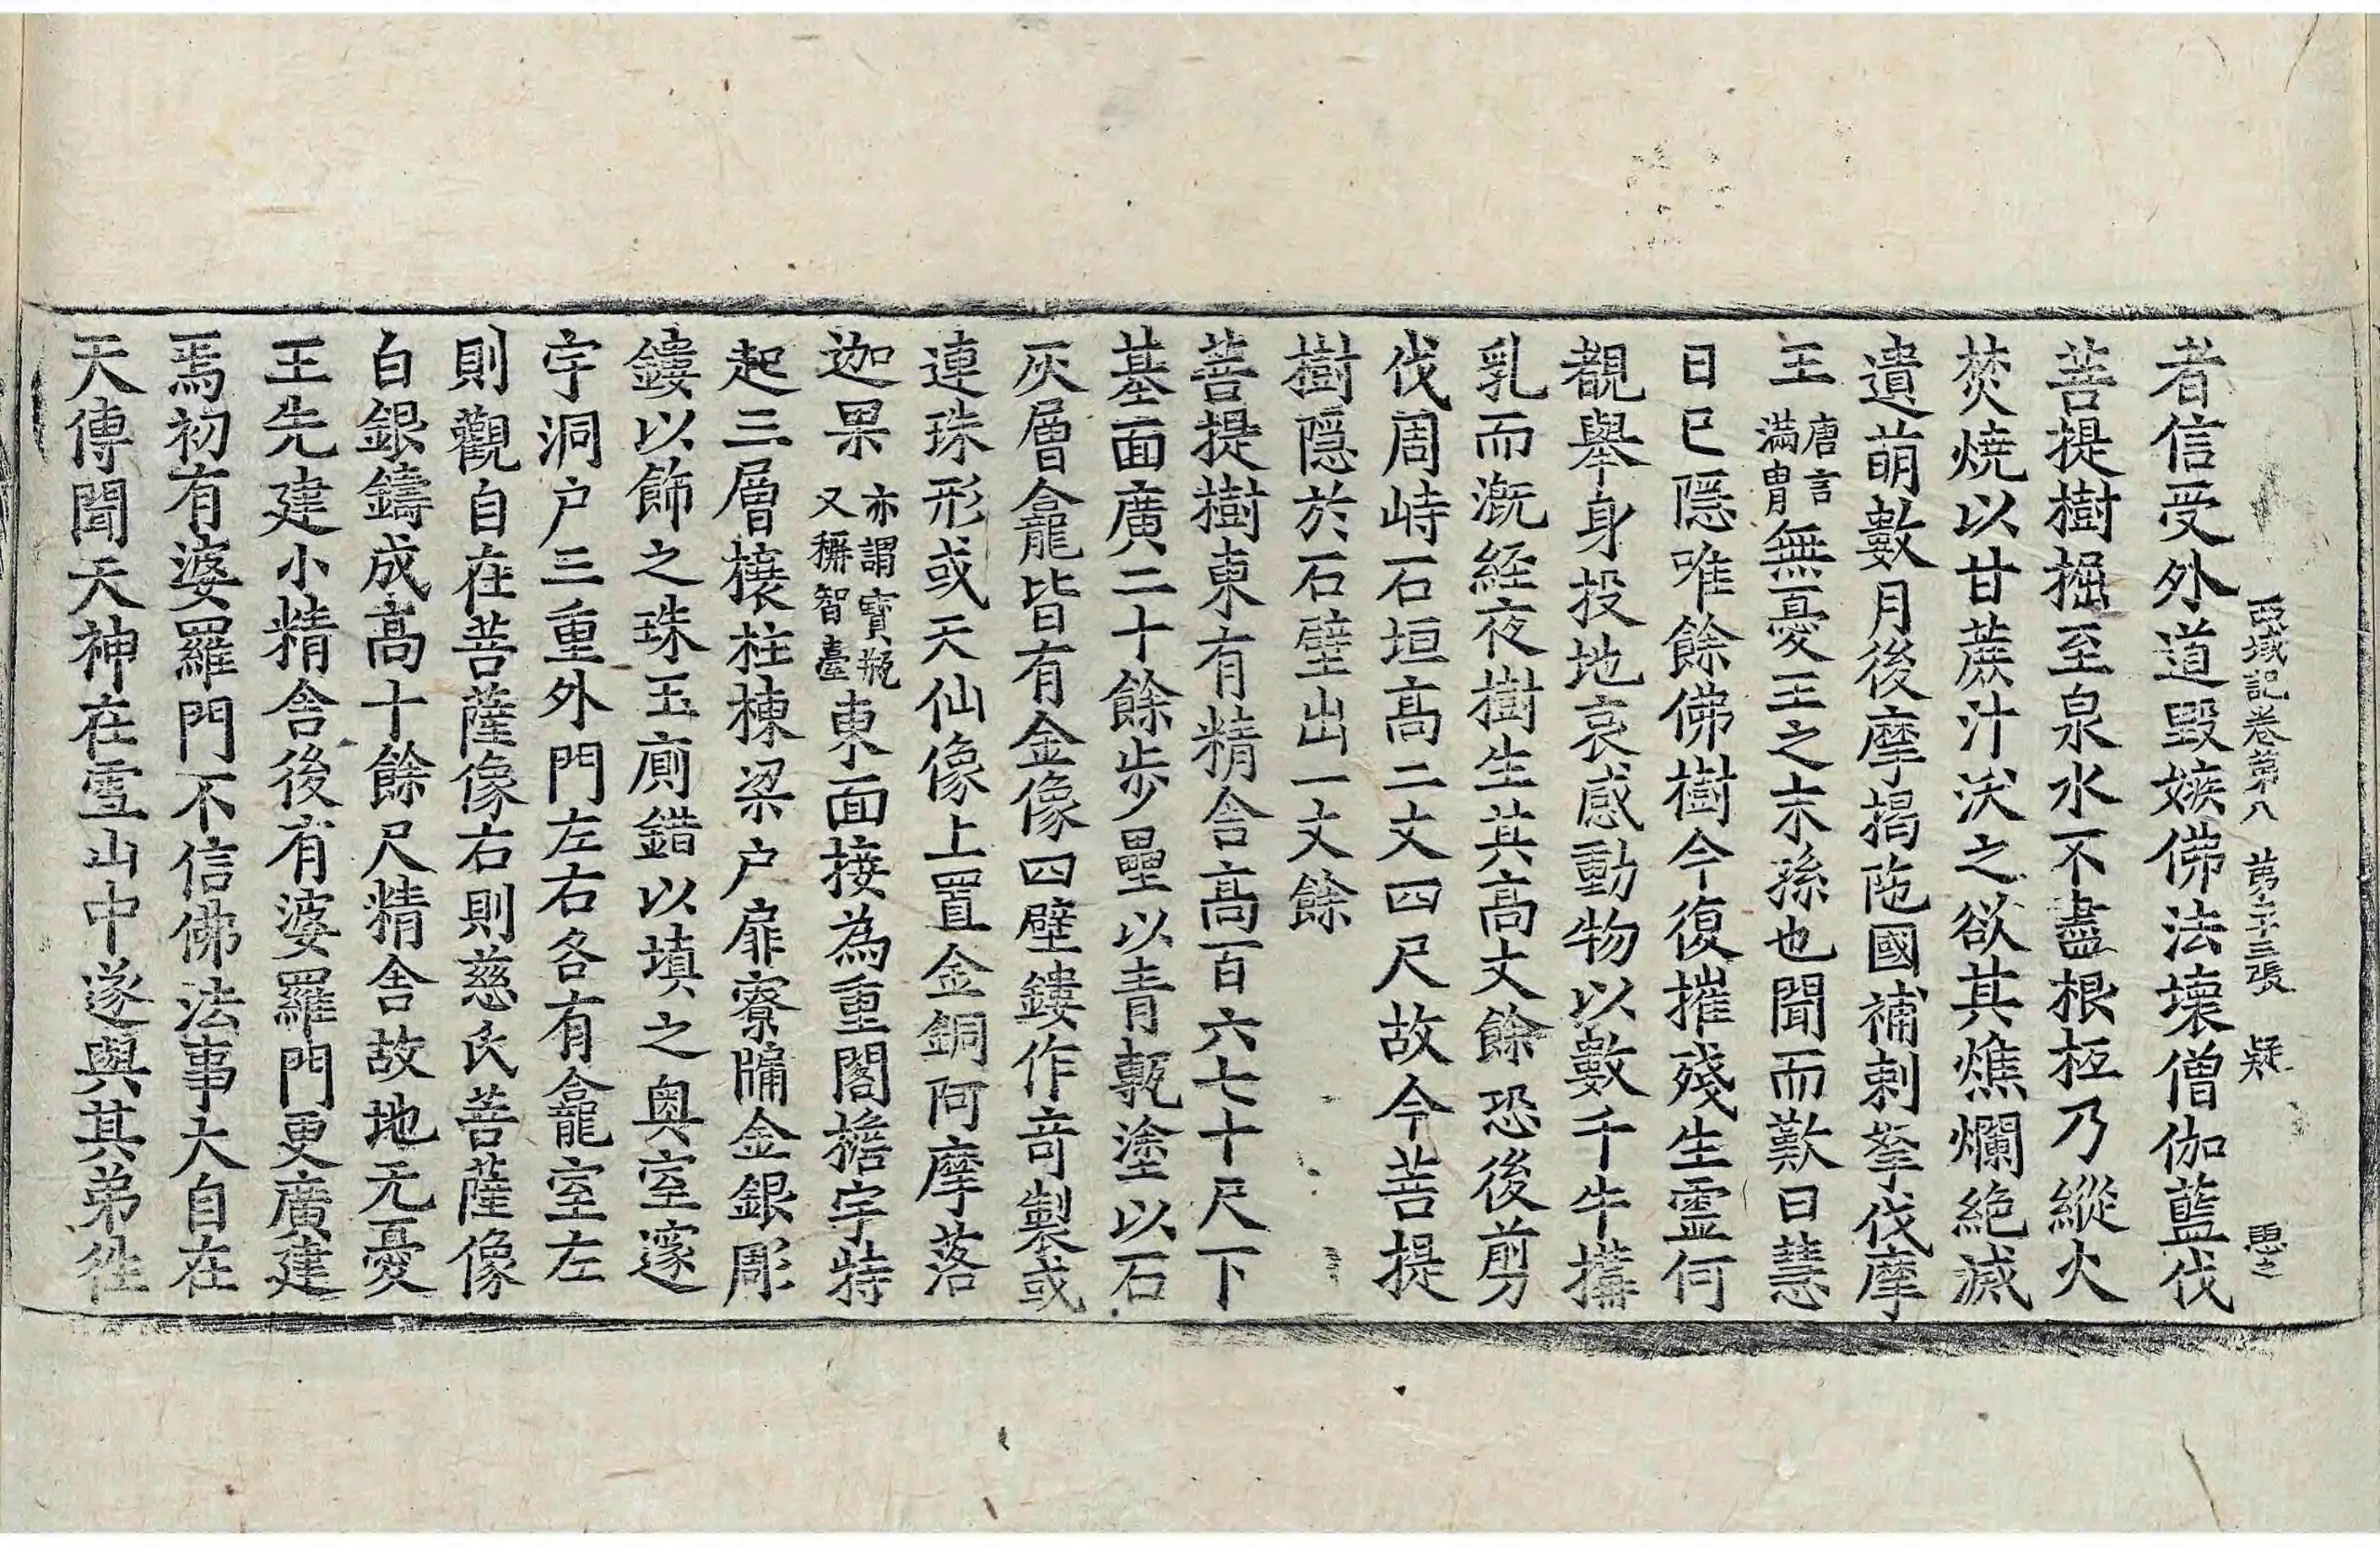 西域記卷第八 第二十三張 疑
者信受外道毀嫉佛法壞僧伽藍伐
菩提樹掘至泉水不盡根柢乃縱火
焚燒以甘蔗汁沃之欲其燋爛絶滅
遺萌數月後摩揭陁國補剌拏伐摩
王唐言滿冑無憂王之末孫也聞而歎曰慧
日已隱唯餘佛樹今復摧殘生靈何
覩舉身投地哀感動物以數千牛搆
乳而溉經夜樹生其高丈餘恐後剪
伐周峙石垣高二丈四尺故今菩提
樹隱於石壁出一丈餘
菩提樹東有精舍高百六七十尺下
基面廣二十餘步壘以青甎塗以石
灰層龕皆有金像四壁鏤作奇製或
連珠形或天仙像上置金銅阿摩落
迦果亦謂寶瓶又稱智臺東面接為重閣檐宇特
起三層榱柱棟梁户扉寮牖金銀彫
鏤以飾之珠玉廁錯以填之奥室邃
宇洞户三重外門左右各有龕室左
則觀自在菩薩像右則慈氏菩薩像
白銀鑄成高十餘尺精舍故地无憂
王先建小精舍後有婆羅門更廣建
焉初有婆羅門不信佛法事大自在
天傳聞天神在雪山中遂與其弟往